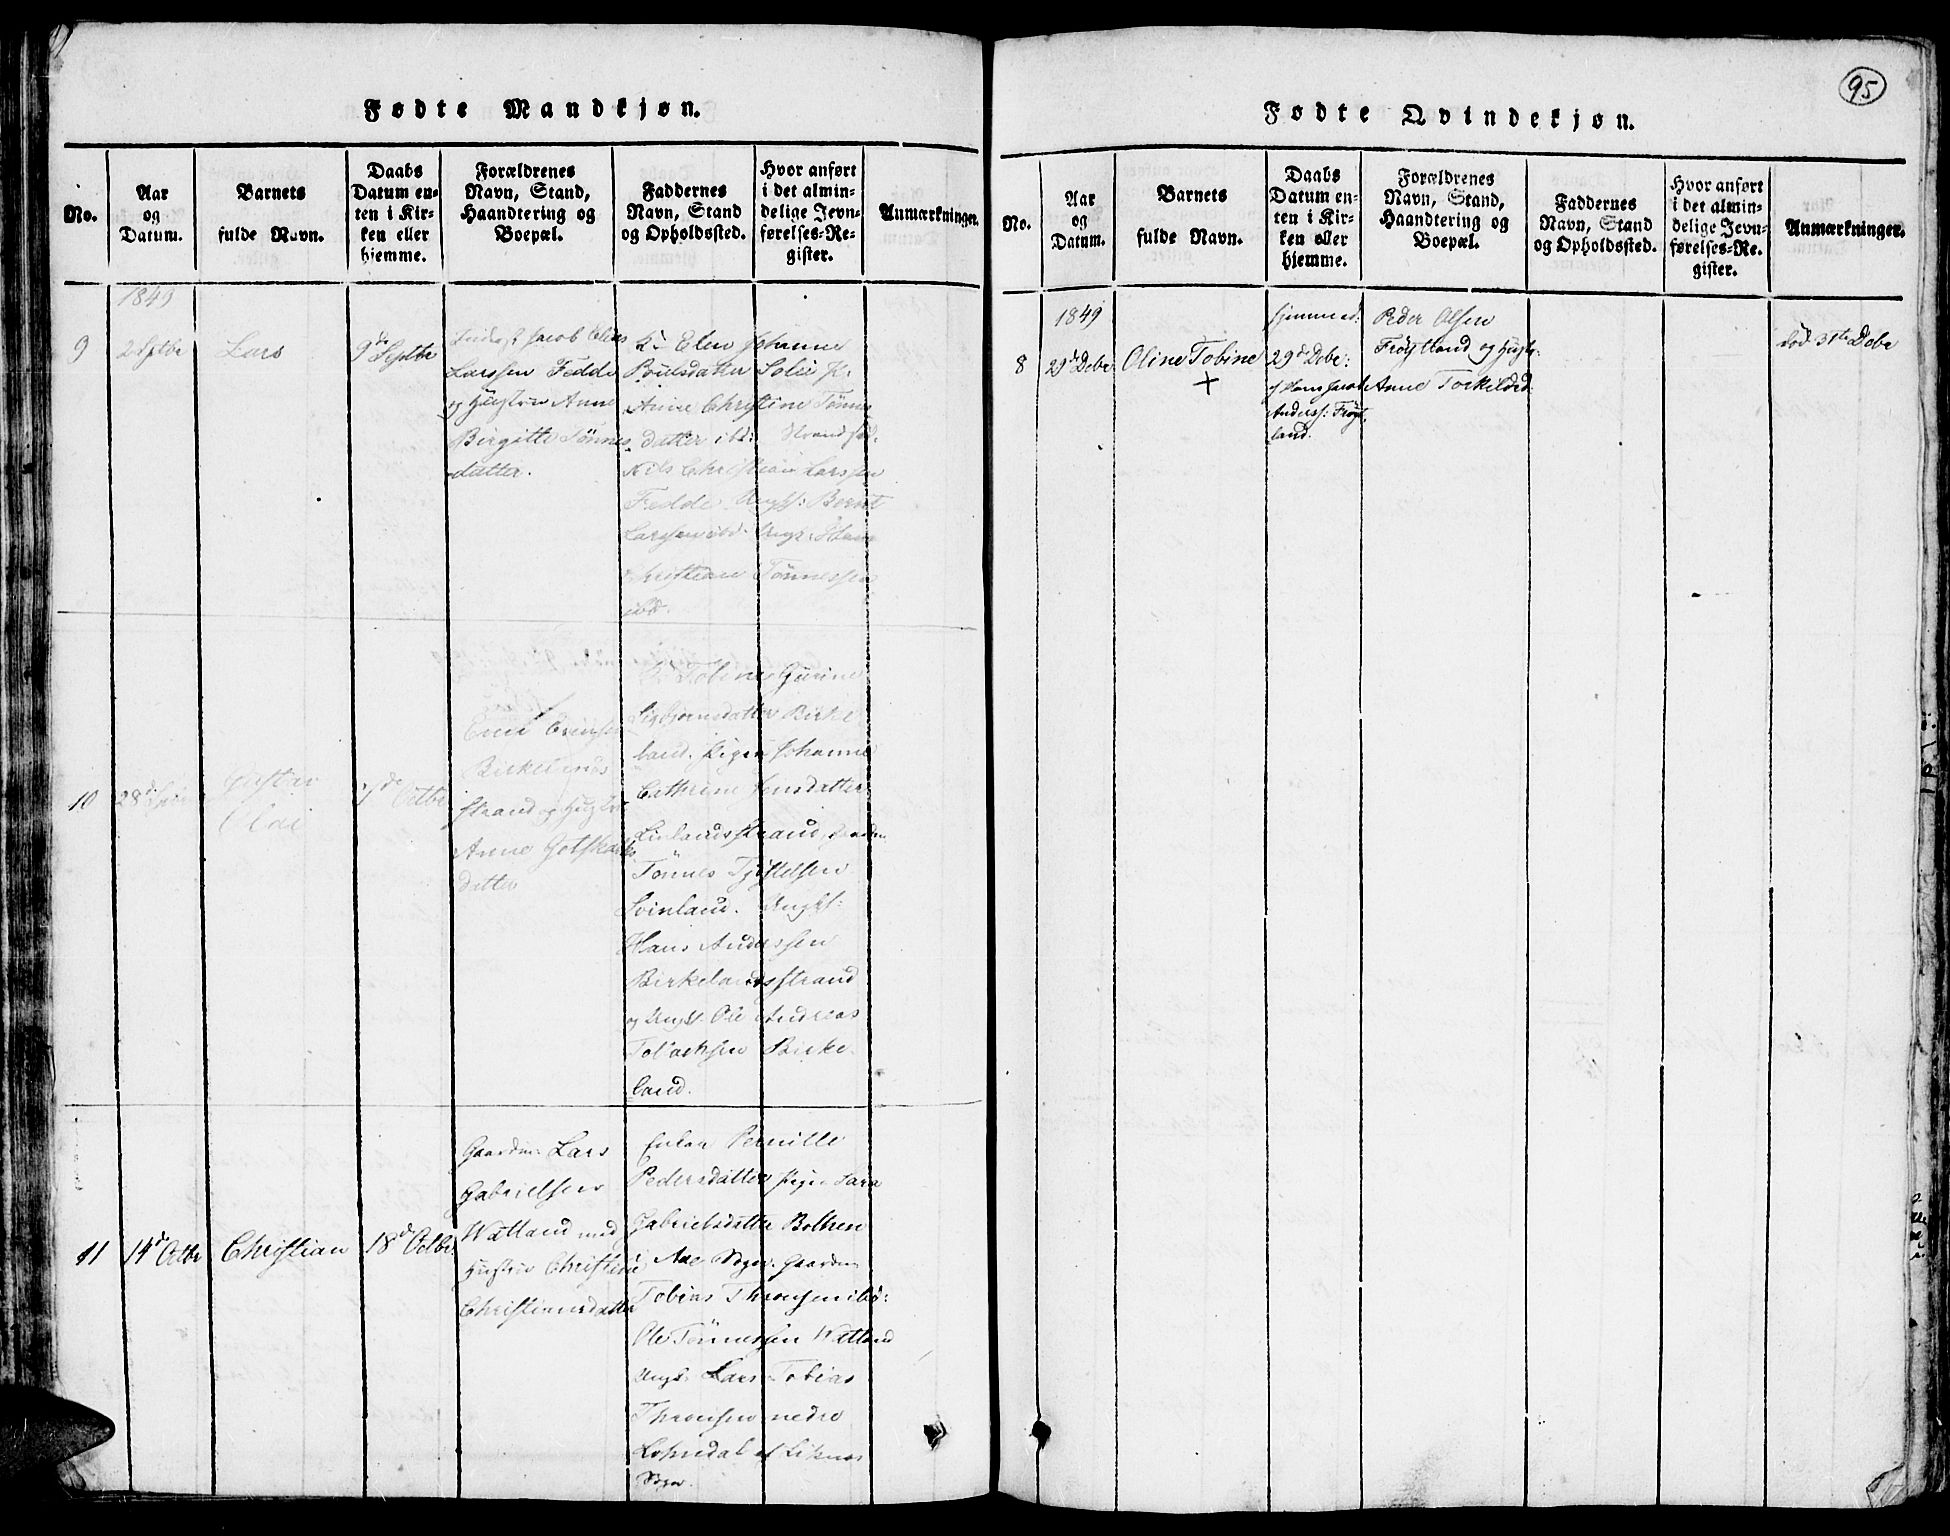 Fødte Mandkjøn.
No.
Aar
og
Datum.
Barnets
fulde Navn.
Daabs
Datum en-
ten i Kir-
ken eller
hjemme.
Forældrenes
Navn, Stand,
Haandtering og
Boepæl.
Faddernes
Navn, Stand
og Opholdssted.
Hvor anført
i det almin-
delige Jevn-
førelses-Re-
gister.
Anmærkninger.
1849
9
2 Septbr
Lars
9de Septbr
Jacob Elias
Larssen Fedde
og Hustrue Anne
Birgitte Tønnes
datter.
K: Elen Johanne
Poulsdatter Solie P.
Anne Christine Tønnes
datter ibd:
Nils Christian Larssen
Fedde Ungk: Bernt
Larssen ibd. Ungk: Hans
Christian Tønnessen
ibd.
10
28d
Gustav
Olai
7de Octbr
Birkelands
strand og Hustr
Anne Gotskalks
datter
Tobine Gurine
Sigbjørnsdatter Birke
land. Pigen Johanne
Cathrine Jensdatter
strand
Tønnes Tjøstelsen
Svinland. Ungk:
Hans Anderssen
Birkelandsstrand
og Ungk. Ole Andreas
Tollachsen Birke
land.
11
14d Octbr
Christian
18d Octbr
Gaardm: Lars
Gabrielsen
Watland med
Hustrue Christine
Christiansdatter
Enken Pernille
Pedersdatter Pigen Sara
Gabrielsdatter
Aae Sogn. Gaardm
Tobias Thronsen ibd:
Ole Tønnessen Watland
Ungk. Lars Tobias
Thronsen nedre
Lohndal af
Sogn.
95
Fødte Qvindekjøn.
No.
Aar
og
Datum.
Barnets
fulde Navn.
Daabs
Datum en-
ten i Kir-
ken eller
hjemme.
Forældrenes
Navn, Stand,
Haandtering og
Boepæl.
Faddernes
Navn, Stand
og Opholdssted.
Hvor anført
i det almin-
delige Jevn-
førelses-Re-
gister.
Anmærkninger.
1849
8
29d Debr
Oline Tobine
+
hjemmed:
29d Debr:
af Hans Jacob
Anderss: Frøyt
land.
Peder Olsen
Frøytland og Hustr:
Anne Torkildsd.
død 31te Debr